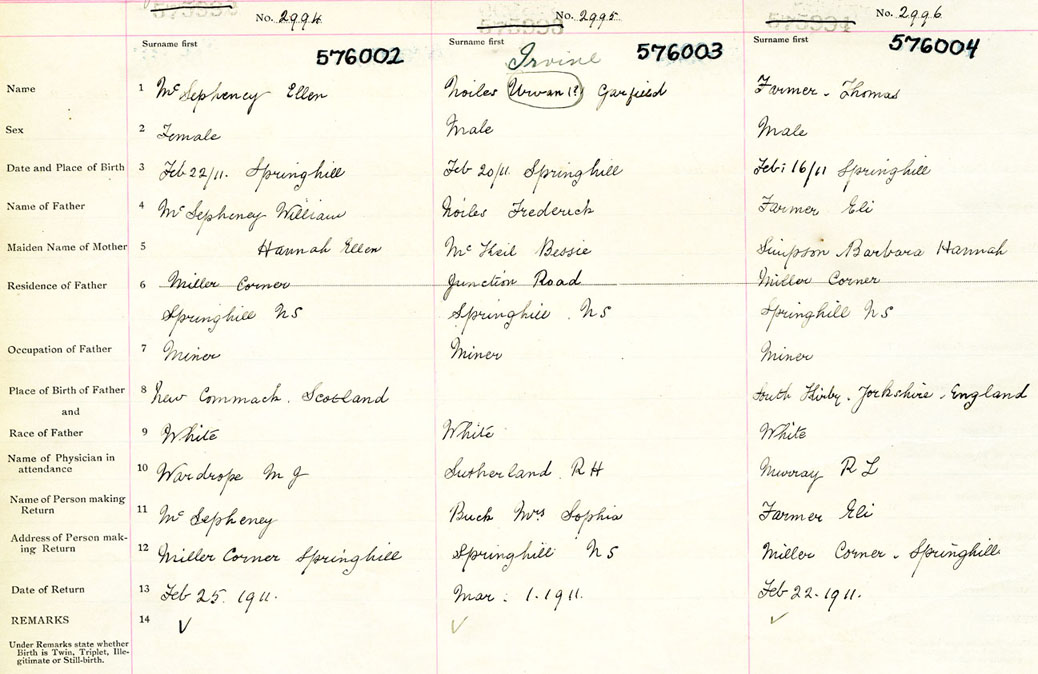 No. 2994 No. 2995 No. 2996
Surname first Surname first Surname first
576002 Irvine 576003 576004
Name 1 Mc Sepheney Ellen Noiles Urvan (?) Garfield Farmer - Thomas
Sex 2 Female Male Male
Date and Place of Birth 3 Feb 22/11. Springhill Feb 20/11. Springhill Feb: 16/11 Springhill
Name of Father 4 Mc Sepheney William Noiles Frederick Farmer Eli
Maiden Name of Mother 5 Hannah Ellen Mc Keil Bessie Simpson Barbara Hannah
Residence of Father 6 Miller Corner Junction Road Miller Corner
Springhill NS Springhill . NS Springhill NS
Occupation of Father 7 Miner Miner Miner
Place of Birth of Father 8 New Commack. Scotland South Kirby. Yorkshire. England
and
Race of Father 9 White White White
Name of Physician in
attendance 10 Wardrope M J Sutherland. R H Murray R L
Name of Person making
Return 11 Mc Sepheney Buck Mrs Sophia Farmer Eli
Address of Person mak-
ing Return 12 Miller Corner Springhill Springhill NS Miller Corner - Springhill
Date of Return 13 Feb 25. 1911. Mar. 1. 1911. Feb 22. 1911.
REMARKS 14
Under Remarks state whether
Birth is Twin, Triplet, Ille-
gitimate or Still-birth.